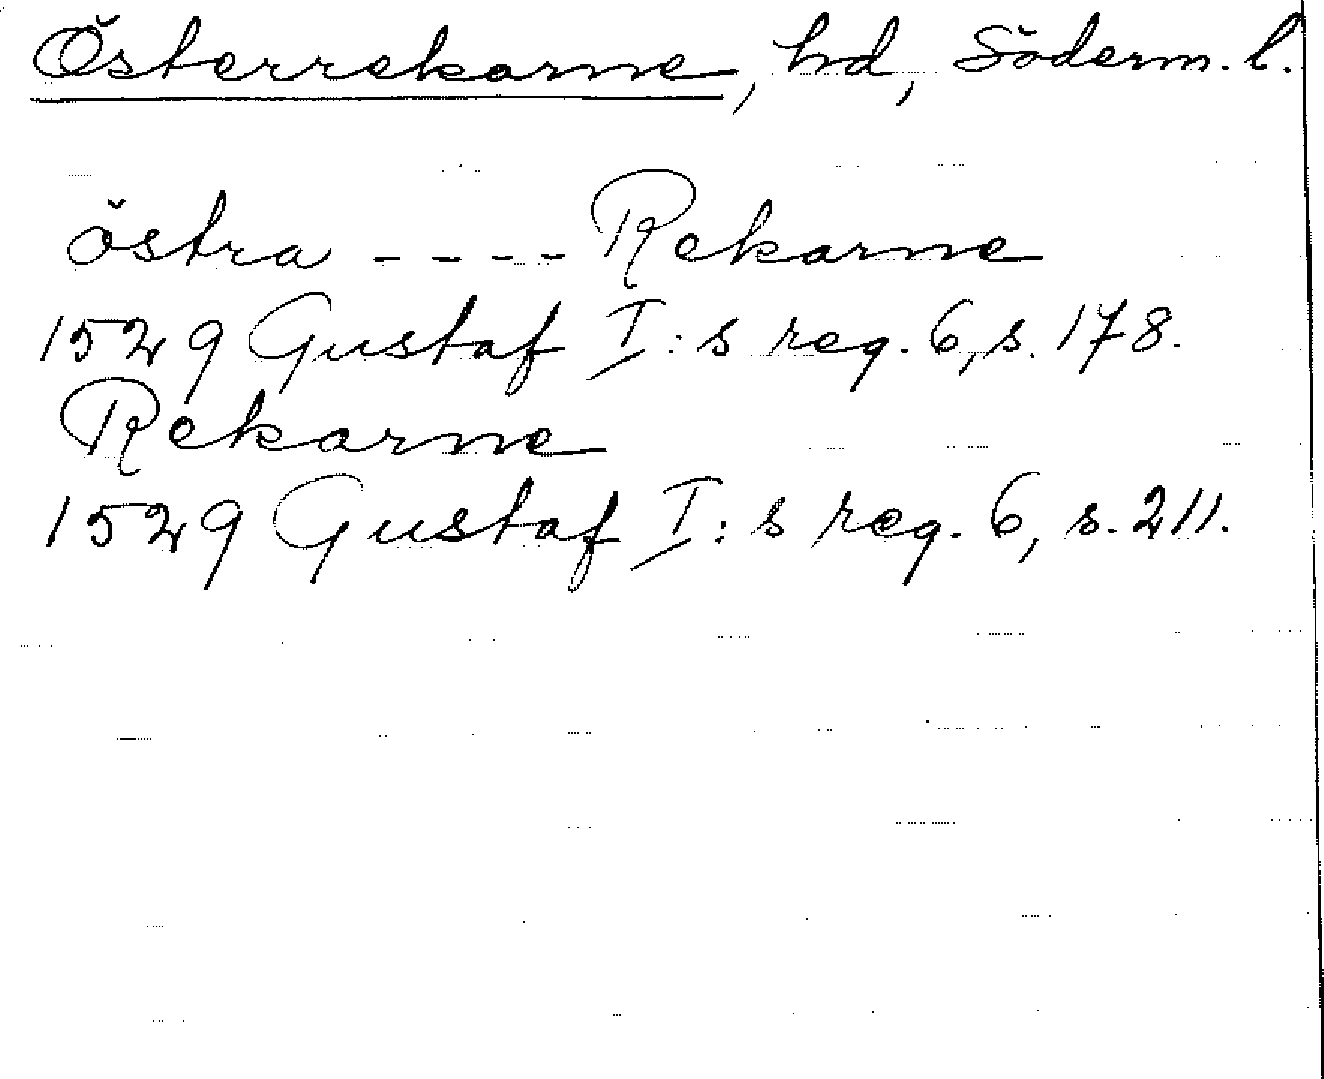 Österrekarne, hd, Söderm. l.
östra ---- Rekarne
1529 Gustaf I:s reg. 6, s. 178.
Rekarne
1529 Gustaf I:s reg. 6, s. 211.